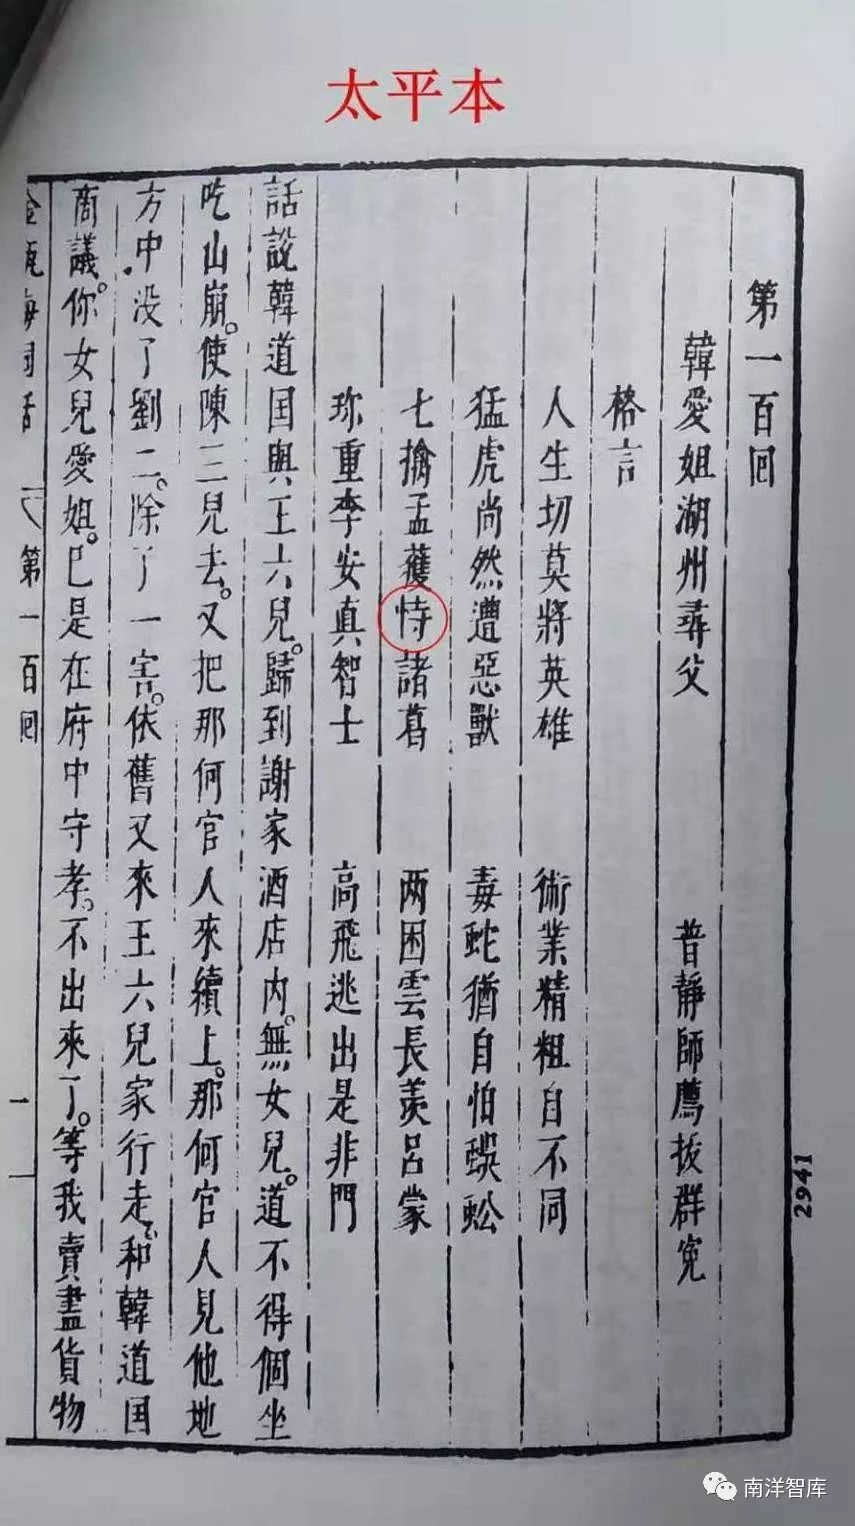 太平本
第一百回
韓愛姐湖州尋父 普靜師薦拔群冤
格言
人生切莫將英雄 術業精粗自不同
猛虎尚然遭惡獸 毒蛇猶自怕蜈蚣
七擒孟獲恃諸葛 两困雲長羡呂蒙
珎重李安真智士 高飛逃出是非門
話說韓道国與王六兒。歸到謝家酒店內。無女兒。道不得個坐
吃山崩。使陳三兒去。又把那何官人來續上。那何官人見他地
方中没了劉二。除了一害。依舊又來王六兒家行走。和韓道国
商議。你女兒愛姐。已是在府中守孝。不出來了。等我賣盡貨物
金瓶梅詞話 第一百回 一
2941
南洋智库